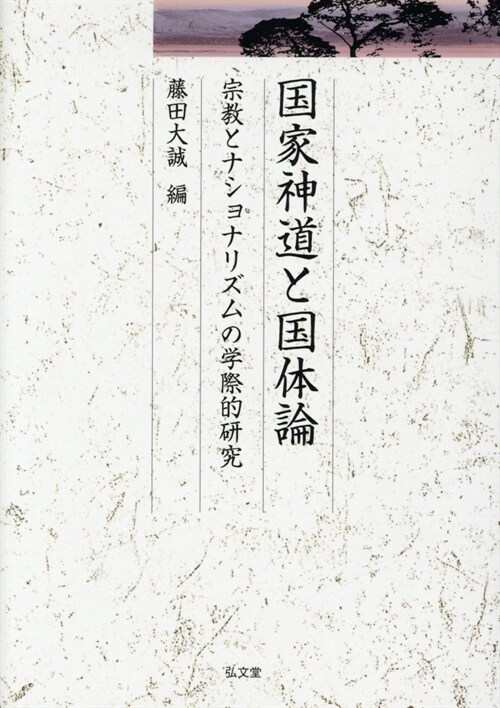 国家神道と国体論
宗教とナショナリズムの学際的研究
藤田大誠 編
弘文堂